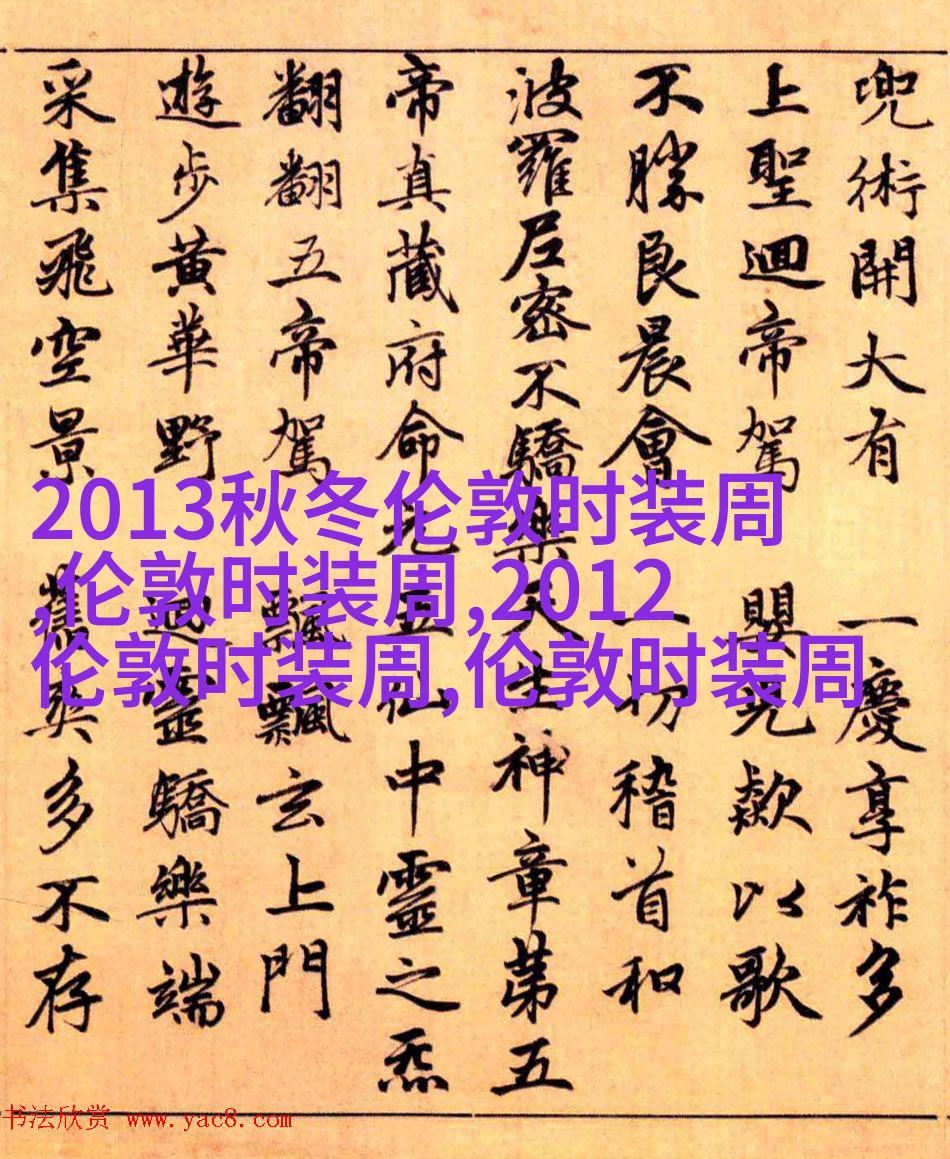 兜術開大有 一慶享祚多
上聖迴帝駕 嬰兒歎以歌
不勝良晨會 一切稽首和
波羅尼密不驕樂天王神章第五
帝真藏府命元五仙中靈之炁
翻翻五帝駕 飄飄玄上門
遊步黃華野 迴靈驕樂端
采集飛空景 舊英多不存
2013秋冬伦敦时装周
,伦敦时装周,2012
伦敦时装周,伦敦时装周
书法欣赏 www.yac8.com